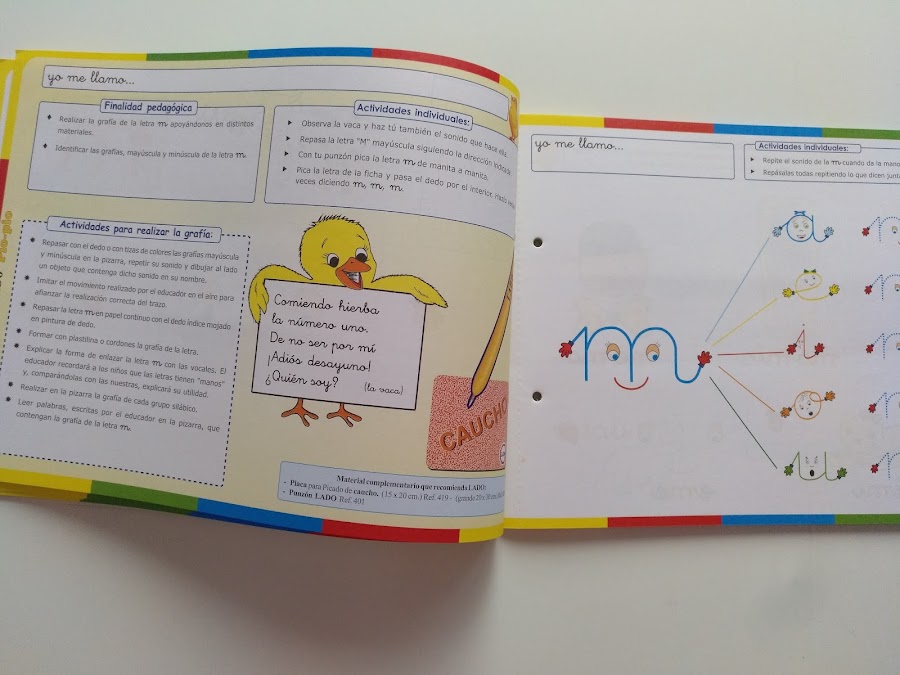 yo me llamo...
Finalidad pedagógica
Realizar la grafía de la letra m apoyándonos en distintos
materiales.
Identificar las grafías, mayúscula y minúscula de la letra m.
Actividades individuales:
Observa la vaca y haz tú también el sonido que hace ella.
Repasa la letra "M" mayúscula siguiendo la dirección indicada.
Con tu punzón pica la letra m de manita a manita.
Pica la letra de la ficha y pasa el dedo por el interior. Hazlo
veces diciendo m, m, m.
Actividades para realizar la grafía:
Repasar con el dedo o con tizas de colores las grafías mayúscula
y minúscula en la pizarra, repetir su sonido y dibujar al lado
un objeto que contenga dicho sonido en su nombre.
Imitar el movimiento realizado por el educador en el aire para
afianzar la realización correcta del trazo.
Repasar la letra m en papel continuo con el dedo índice mojado
en pintura de dedo.
Formar con plastilina o cordones la grafía de la letra.
Explicar la forma de enlazar la letra m con las vocales. El
educador recordará a los niños que las letras tienen "manos"
y, comparándolas con las nuestras, explicará su utilidad.
Realizar en la pizarra la grafía de cada grupo silábico.
Leer palabras, escritas por el educador en la pizarra, que
contengan la grafía de la letra m.
Comiendo hierba
la número uno.
De no ser por mí
¡Adiós desayuno!
¿Quién soy? (la vaca)
CAUCHO
Material complementario que recomienda LADO:
- Placa para Picado de caucho. (15 x 20 cm.) Ref. 419 - (grande 20 x 30 cm.
- Punzón LADO Ref. 401
Pio-pio
yo me llamo...
Actividades individuales:
Repite el sonido de la m cuando da la mano
Repásalas todas repitiendo lo que dicen
m
a
e
i
o
u
m
m
m
m
m